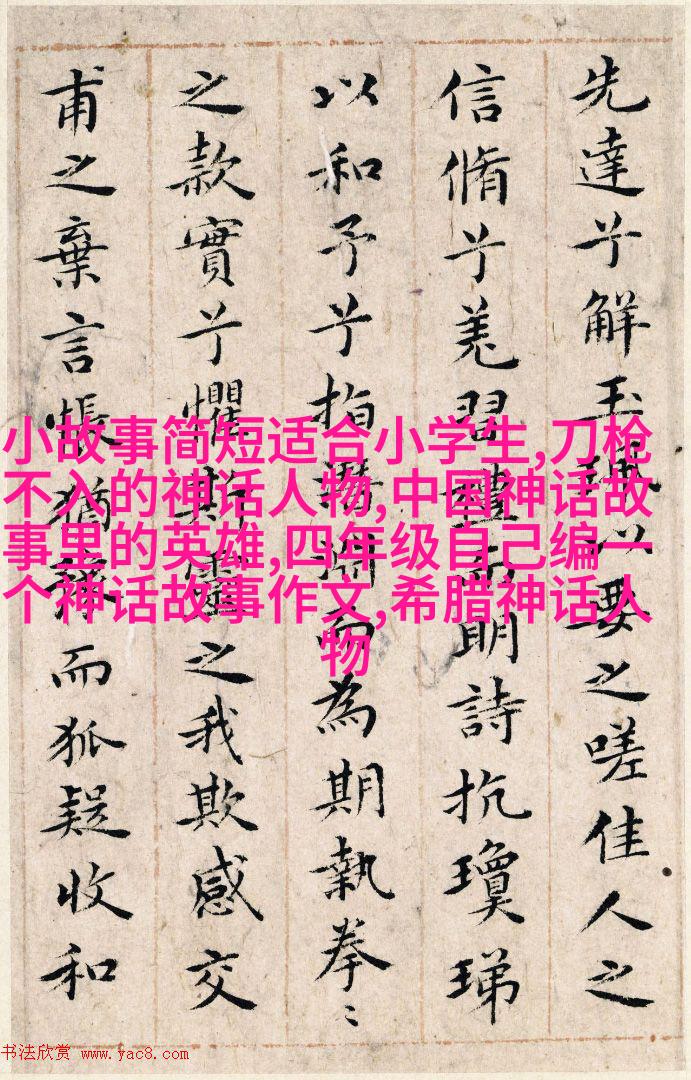 先達兮解玉珮以要之嗟佳人之
信脩兮羌習禮而明詩抗瓊珶
以和予兮指潛淵而為期執拳〻
之款實兮懼斯靈之我欺感交
甫之棄言悵猶豫而狐疑收和
小故事简短适合小学生,刀枪
不入的神话人物,中国神话故
事里的英雄,四年级自己编一
个神话故事作文,希腊神话人
物
书法欣赏 www.yac8.com